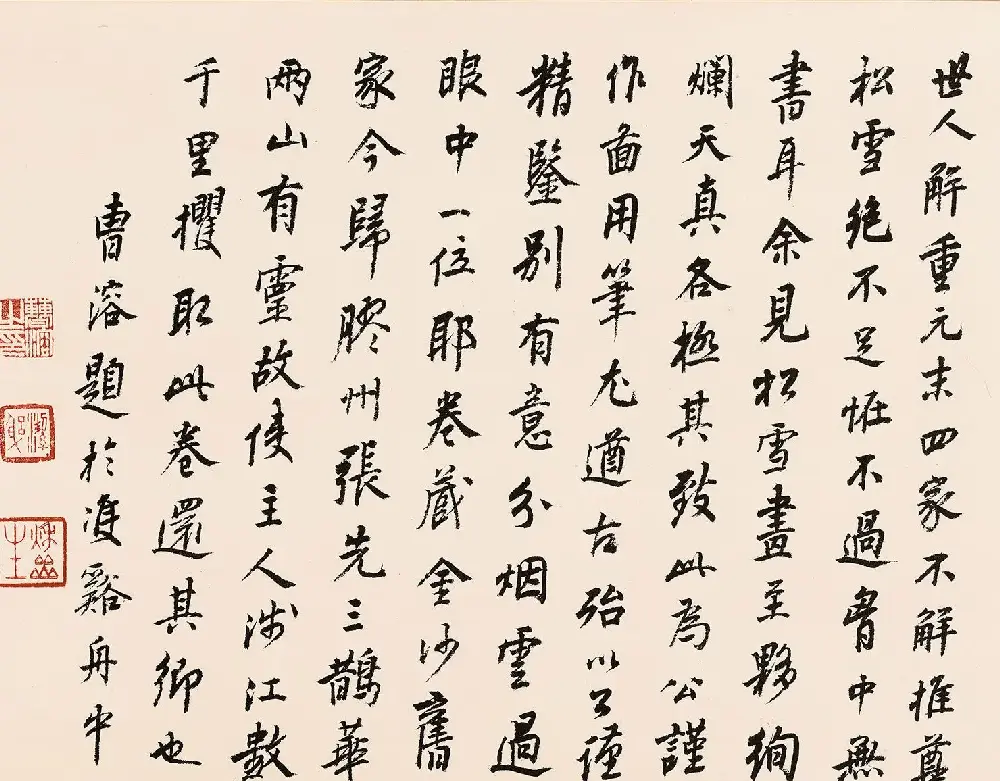 世人解重元末四家不解推尊
松雪絕不足怪不過胷中無
書耳余見松雪畫至夥絢
爛天真各極其致此為公謹
作圖用筆尤遒古殆以公謹
精鑒別有意分烟雲過
眼中一位耶卷藏金沙舊
家今歸膠州張先三鵲華
兩山有靈故使主人涉江數
千里攫取此卷還其鄉也
曹溶題於雙谿舟中
曹溶之印
潔躬